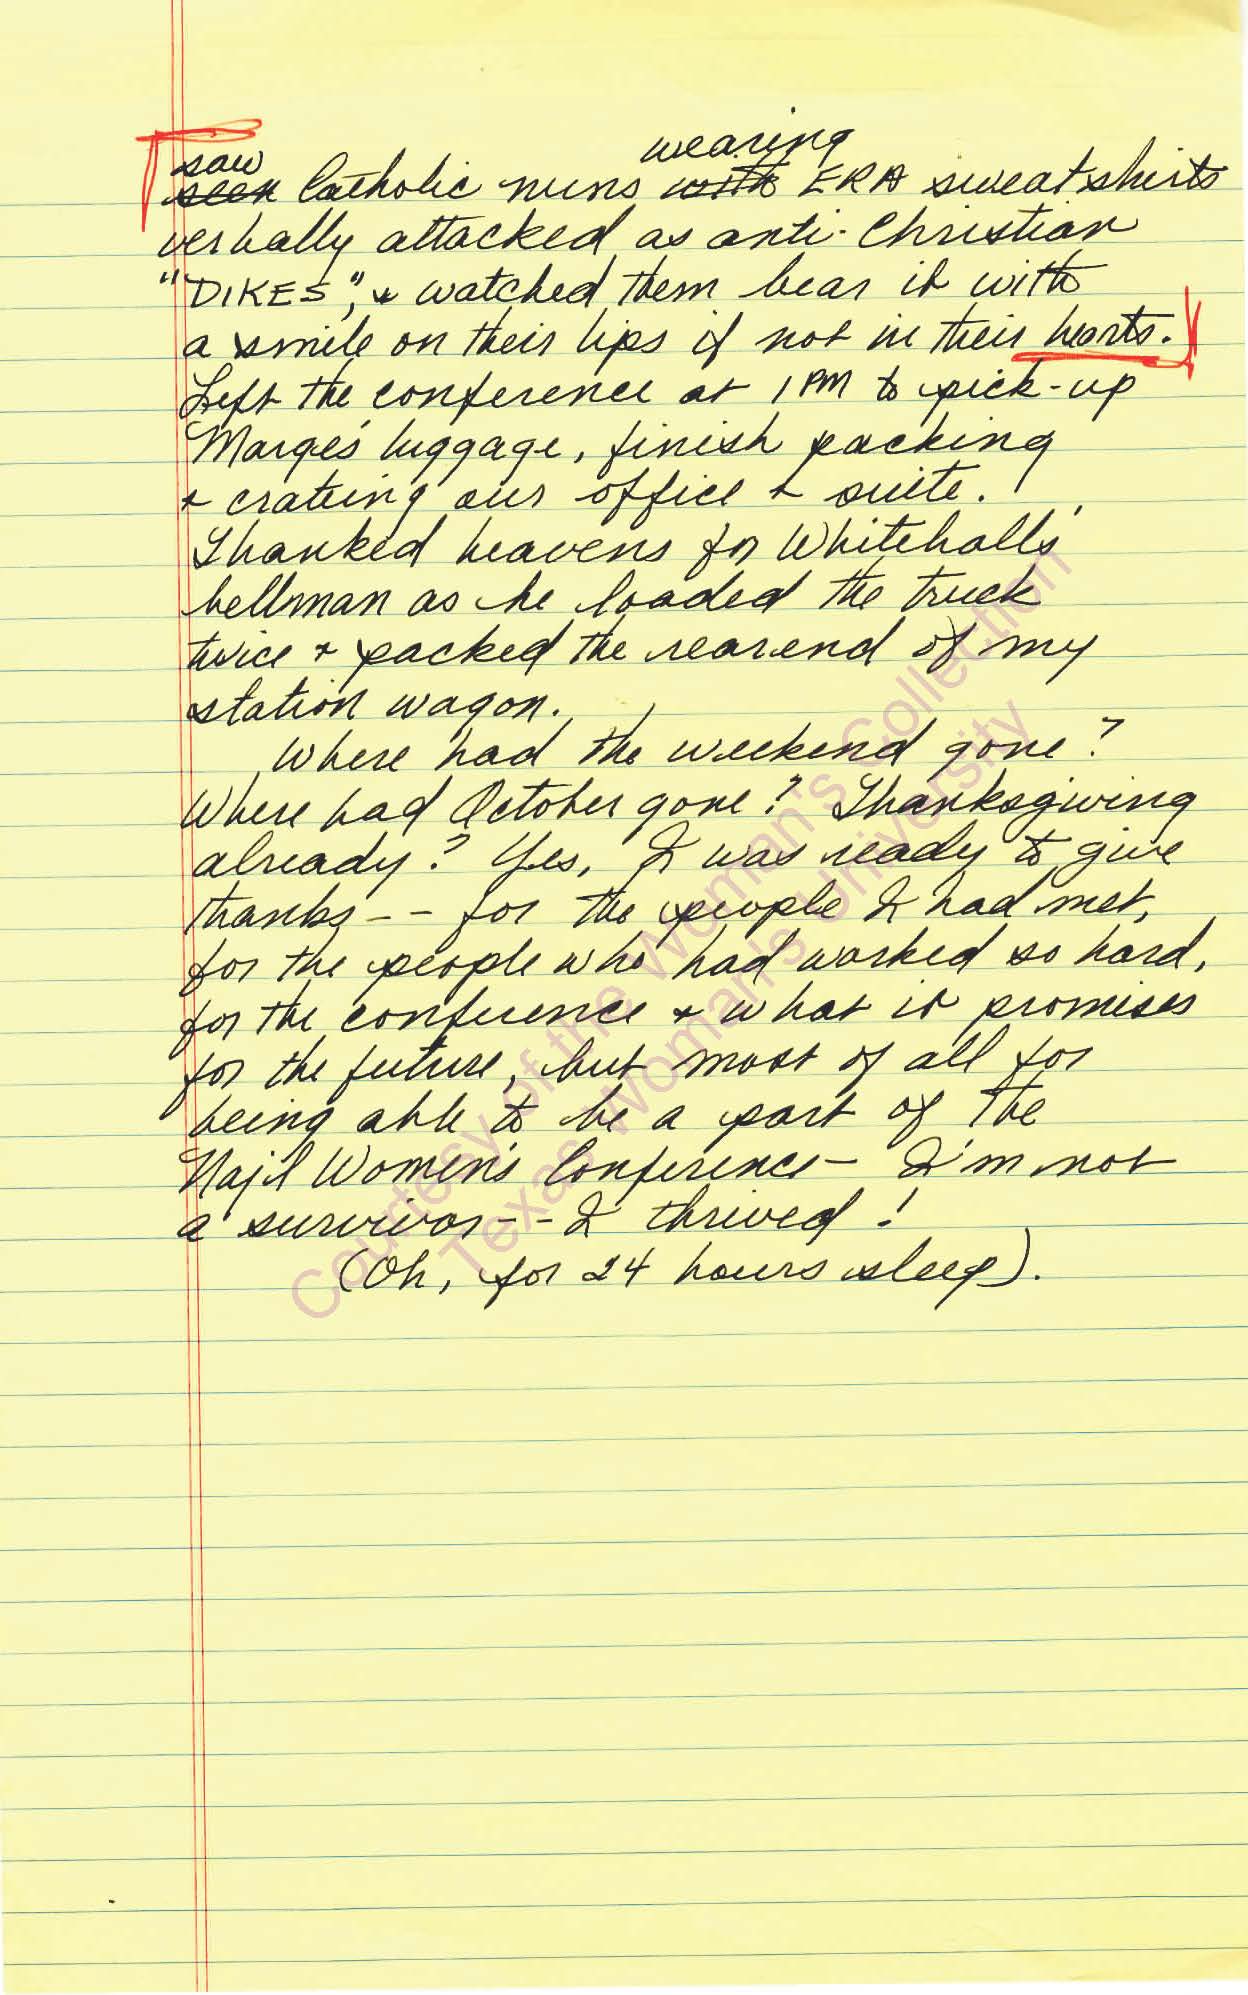 saw wearing
seen Catholic nuns with ERA sweatshirts
verbally attacked as anti-Christian
"DIKES", & watched them bear it with
a smile on their lips if not in their hearts.
Left the conference at 1 PM to pick-up
Marge's luggage, finish packing
& crating our office & suite.
Thanked heavens for Whitehall's
bellman as he loaded the truck
twice & packed the rearend of my
station wagon.
Where had the weekend gone?
Where had October gone? Thanksgiving
already? Yes, I was ready to give
thanks-- for the people I had met,
for the people who had worked so hard,
for the conference & what it promises
for the future, but most of all for
being able to be a part of the
Nat'l Women's Conference- I'm not
a survivor-- I thrived!
(Oh, for 24 hours sleep).
Courtesy of the Woman's Collection
Texas Woman's University